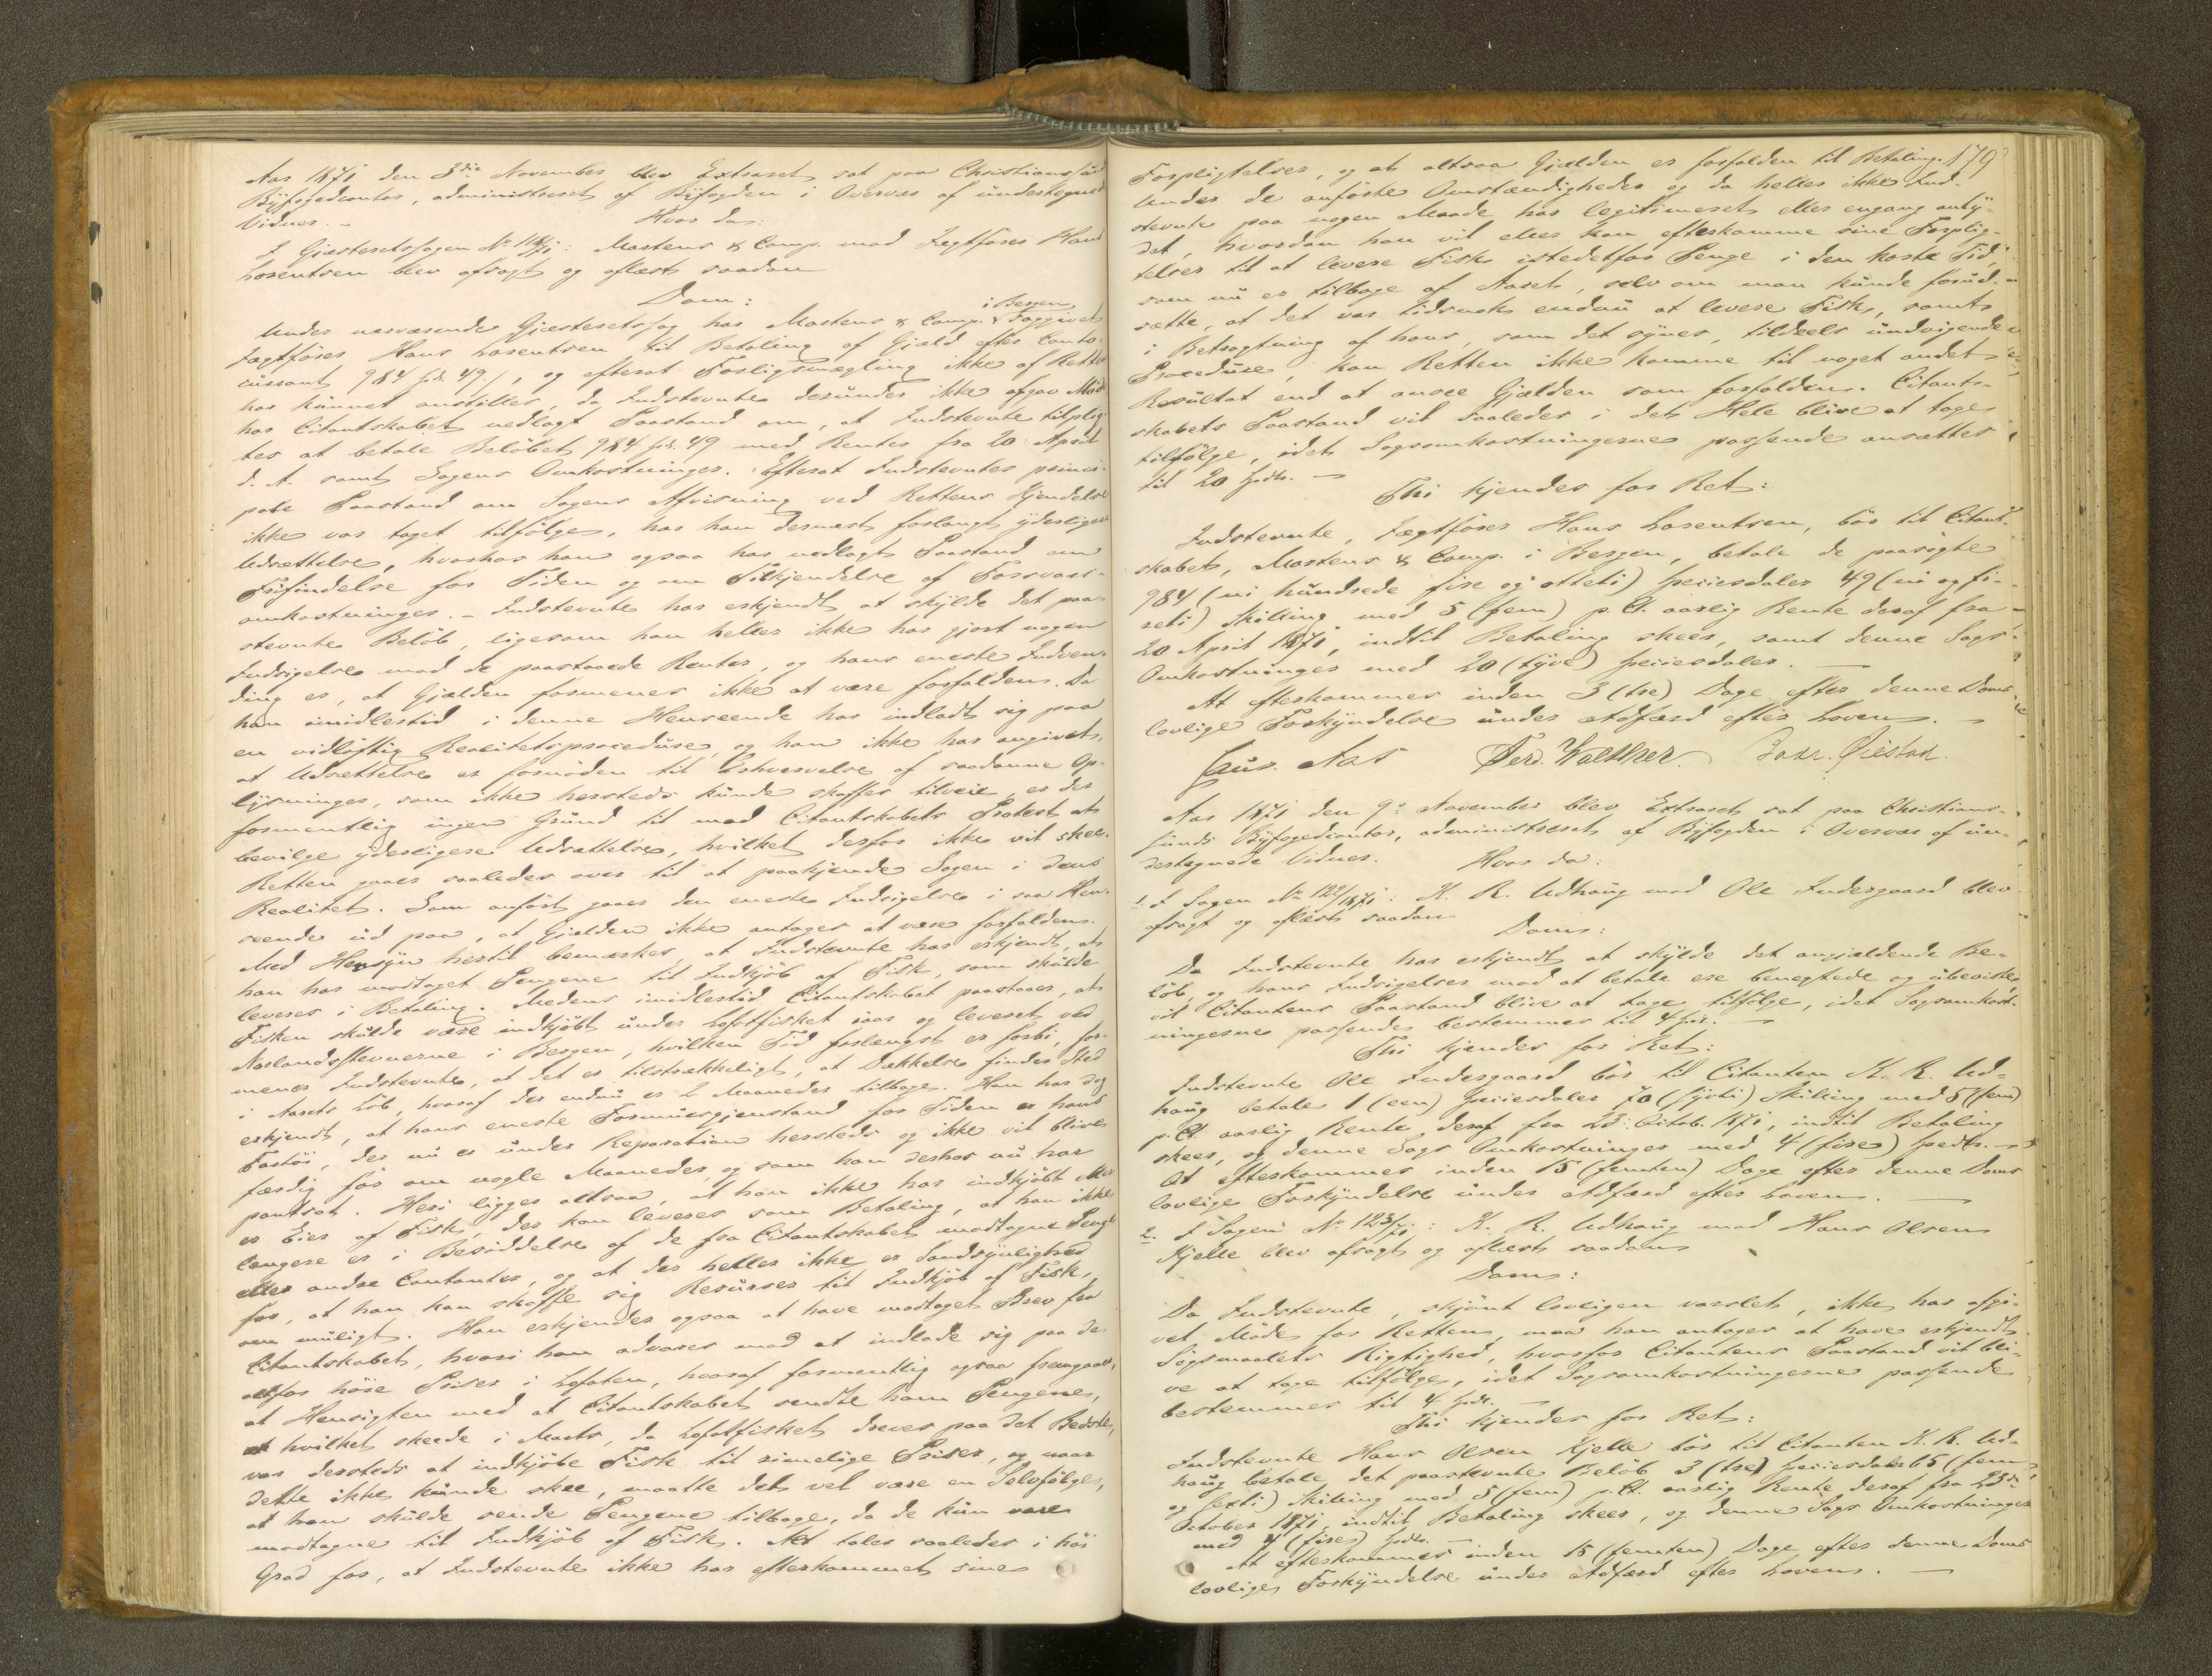 Aar 1871 den 3die November blev Extraret sat paa Christianssund
Byfogedcontor, administreret af Byfogden i Overvær af undertegnede
Vidner. – Hvor da:
I Gjæsteretssagen No 118/71: Martens & Comp. mod Jægtfører Hans
Lorentsen blev afsagt og oplæst saadan
Dom:
Under nærværende Gjæsteretssag har Martens & Comp. i Bergen sagsgivet
Jægtfører Hans Lorentsen til Betaling af Gjæld efter Conto-
curant 984 spd. 49 /, og efterat Forligsmægling ikke af Retten
har kunnet anstilles, da Indstevnte derunder ikke afgav Møde
har Citantskabet nedlagt Paastand om, at Indstevnte tilplig-
tes at betale Beløbet 984 spd. 49 med Renter fra 20 April
d. A. samt Sagens Omkostninger. Efterat Indstevntes princi-
pale Paastand om Sagens Afvisning ved Rettens Kjendelse
ikke var taget tilfølge, har han dernæst forlangt yderligere
Udsættelse, hvorhos han ogsaa har nedlagt Paastand om
Frifindelse for Tiden og om Tilkjendelse af Forsvars-
omkostninger. – Indstevnte har erkjendt at skylde det paa-
stevnte Beløb, ligesom han heller ikke har gjort nogen
Indsigelse mod de paastaaede Renter, og hans eneste Indven-
ding er, at Gjælden formenes ikke at være forfalden. Da
han imidlertid i denne Henseende har indladt sig paa
en vidløftig Realitetsprocedure, og han ikke har angivet,
at Udsættelse er fornøden til Erhvervelse af saadanne Op-
lysninger, som ikke hersteds kunde skaffes tilveie, er der
formentlig ingen Grund til mod Citantskabets Protest at
bevilge yderligere Udsættelse, hvilket derfor ikke vil skee.
Retten gaaer saaledes over til at paakjende Sagen i dens
Realitet. Som anført gaaer den eneste Indsigelse i saa Hen-
seende ud paa, at Gjælden ikke antages at være forfalden.
Med Hensyn hertil bemærkes, at Indstevnte har erkjendt, at
han har modtaget Pengene til Indkjøb af Fisk, som skulde
leveres i Betaling. Medens imidlertid Citantskabet paastaaer, at
Fisken skulde være indkjøbt under Lofotfisket iaar og leveret ved
Norlandsstevnerne i Bergen, hvilken Tid forlængst er forbi, for-
mener Indstevnte, at det er tilstrækkeligt, at Dækkelse finder Sted
i Aarets Løb, hvoraf der endnu er 2 Maaneder tilbage. Han har dog
erkjendt, at hans eneste Formuesgjenstand for Tiden er hans
Fartøi, der nu er under Reparation hersteds og ikke vil blive
færdig før om nogle Maaneder, og som han derhos nu har
pantsat. Heri ligger altsaa, at han ikke har indkjøbt eller
er Eier af Fisk, der kan leveres som Betaling, at han ikke
længere er i Besiddelse af de fra Citantskabet modtagne Penge
eller andre Contanter, og at der heller ikke er Sandsynlighed
for, at han kan skaffe sig Resurser til Indkjøb af Fisk,
om muligt. Han erkjender ogsaa at have modtaget Brev fra
Citantskabet, hvori han advares mod at indlade sig paa de
altfor høie Priser i Lofoten, hvoraf formentlig ogsaa fremgaaer,
at Hensigten med at Citantskabet sendte ham Pengene,
hvilket skeede i Marts, da Lofotfisket drives paa det Bedste,
var dersteds at indkjøbe Fisk til rimelige Priser, og naar
dette ikke kunde skee, maatte det vel være en Selvfølge,
at han skulde sende Pengene tilbage, da de kun vare
modtagne til Indkjøb af Fisk. Alt taler saaledes i høi
Grad for, at Indstevnte ikke har efterkommet sine
179
Forpligtelser, og at altsaa Gjælden er forfalden til Betaling.
Under de anførte Omstændigheder og da heller ikke Ind-
stevnte paa nogen Maade har legitimeret eller engang anty-
det, hvordan han vil eller kan efterkomme sine Forplig-
telser til at levere Fisk istedetfor Penge i den korte Tid,
som nu er tilbage af Aaret, selv om man kunde forud-
sætte, at det var tidsnok endnu at levere Fisk, samt
i Betragtning af hans, som det synes, tildeels undvigende
Procedure, kan Retten ikke komme til noget andet
Resultat end at ansee Gjælden som forfalden. Citant-
skabets Paastand vil saaledes i det Hele blive at tage
tilfølge, idet Sagsomkostningerne passende ansættes
til 20 spdr. –
Thi kjendes for Ret:
Indstevnte, Jægtfører Hans Lorentsen, bør til Citant-
skabet, Martens & Comp. i Bergen, betale de paasøgte
984 (ni hundrede fire og otteti) speciesdaler 49 (ni og fi-
reti) Skilling med 5 (fem) p. Ct. aarlig Rente deraf fra
20 April 1871, indtil Betaling skeer, samt denne Sags
Omkostninger med 20 (tyve) speciesdaler. –
At efterkommes inden 3 (tre) Dage efter denne Doms
lovlige Forkyndelse under Adfærd efter Loven. –
Laur. Aas Ferd. Walther.
Aar 1871 den 9de November blev Extraret sat paa Christians-
sunds Byfogedcontor, administreret af Byfogden i Overvær af un-
dertegnede Vidner. Hvor da:
1. I Sagen No 122/1871: K. R. Udhaug mod Ole Indergaard blev
afsagt og oplæst saadan
Dom:
Da Indstevnte har erkjendt at skylde det angjældende Be-
løb, og hans Indsigelser mod at betale ere benegtede og ubeviste,
vil Citantens Paastand blive at tage tilfølge, idet Sagsomkost-
ningerne passende bestemmes til 4 spd. –
Thi kjendes for Ret:
Indstevnte Ole Indergaard bør til Citanten K. R. Ud-
haug betale 1 (een) speciesdaler 70 (sytti) Skilling med 5 (fem)
p. Ct. aarlig Rente deraf fra 23 Octob. 1871, indtil Betaling
skeer, og denne Sags Omkostninger med 4 (fire) spdlr. –
At efterkommes inden 15 (femten) Dage efter denne Doms
lovlige Forkyndelse under Adfærd efter Loven. –
2. I Sagen No 123/71: K. R. Udhaug mod Hans Olsen
Kjelle blev afsagt og oplæst saadan
Dom:
Da Indstevnte, skjønt lovligen varslet, ikke har afgi-
vet Møde for Retten, maa han antages at have erkjendt
Søgsmaalets Rigtighed, hvorfor Citantens Paastand vil bli-
ve at tage tilfølge, idet Sagsomkostningerne passende
bestemmes til 4 spdr. –
Thi kjendes for Ret:
Indstevnte Hans Olsen Kjelle bør til Citanten K. R. Ud-
haug betale det paastevnte Beløb 3 (tre) speciesdaler 65 (fem
og sexti) Skilling med 5 (fem) p. Ct. aarlig Rente deraf fra 23de
October 1871, indtil Betaling skeer, og denne Sags Omkostninger
med 4 (fire) spdr. –
At efterkommes inden 15 (femten) Dage efter denne Doms
lovlige Forkyndelse under Adfærd efter Loven. –